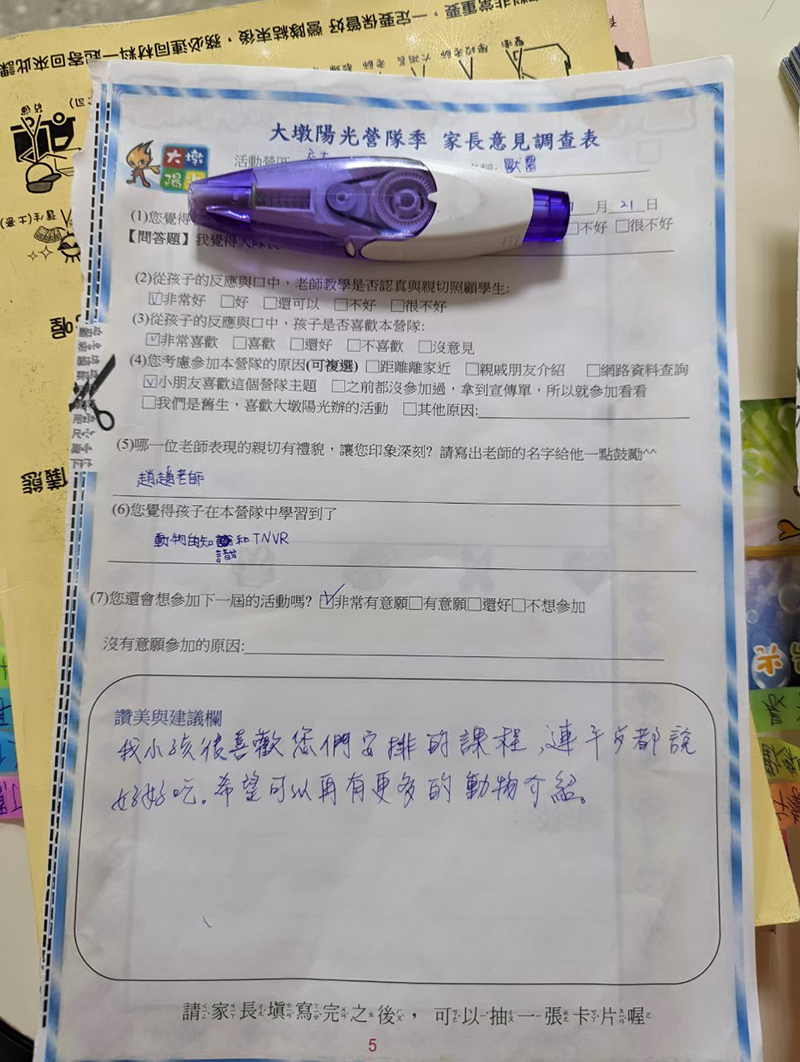 料非常重要，一定要保管好，營隊結束後，務必連同材料一起寄回來此課
大墩陽光營隊季 家長意見調查表
大墩
陽
活動營區
獸醫
月 21 日
(1)您覺得
不好 □很不好
【問答題】我覺得大隊長
(2)從孩子的反應與口中，老師教學是否認真與親切照顧學生:
☑非常好 □好 □還可以 □不好 □很不好
(3)從孩子的反應與口中，孩子是否喜歡本營隊:
☑非常喜歡 □喜歡 □還好 □不喜歡 □沒意見
(4)您考慮參加本營隊的原因(可複選) □距離離家近 □親戚朋友介紹 □網路資料查詢
☑小朋友喜歡這個營隊主題 □之前都沒參加過，拿到宣傳單，所以就參加看看
□我們是舊生，喜歡大墩陽光辦的活動 □其他原因:
(5)哪一位老師表現的親切有禮貌，讓您印象深刻? 請寫出老師的名字給他一點鼓勵^^
趙趙老師
(6)您覺得孩子在本營隊中學習到了
動物的知識和TNVR
(7)您還會想參加下一屆的活動嗎? ☑非常有意願□有意願□還好□不想參加
沒有意願參加的原因:
讚美與建議欄
我小孩很喜歡您們安排的課程，連午歺都說
好好吃。希望可以再有更多的動物介紹。
請家長填寫完之後，可以抽一張卡片喔
5
儀態